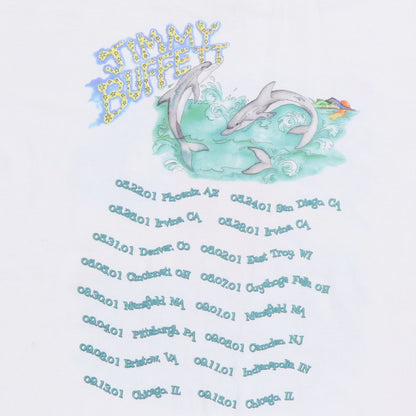 JIMMY
BUFFETT
05.22.01 Phoenix, AZ
05.24.01 San Diego, CA
05.26.01 Irvine CA
05.28.01 Irvine, CA
05.31.01 Denver, CO
06.02.01 East Troy, WI
06.05.01 Cincinnati OH
06.07.01 Cuyahoga Falls OH
08.30.01 Mansfield MA
09.01.01 Mansfield, MA
09.04.01 Pittsburgh, PA
09.06.01 Camden, NJ
09.08.01 Bristow, VA
09.11.01 Indianapolis IN
09.13.01 Chicago, IL
09.15.01 Chicago, IL